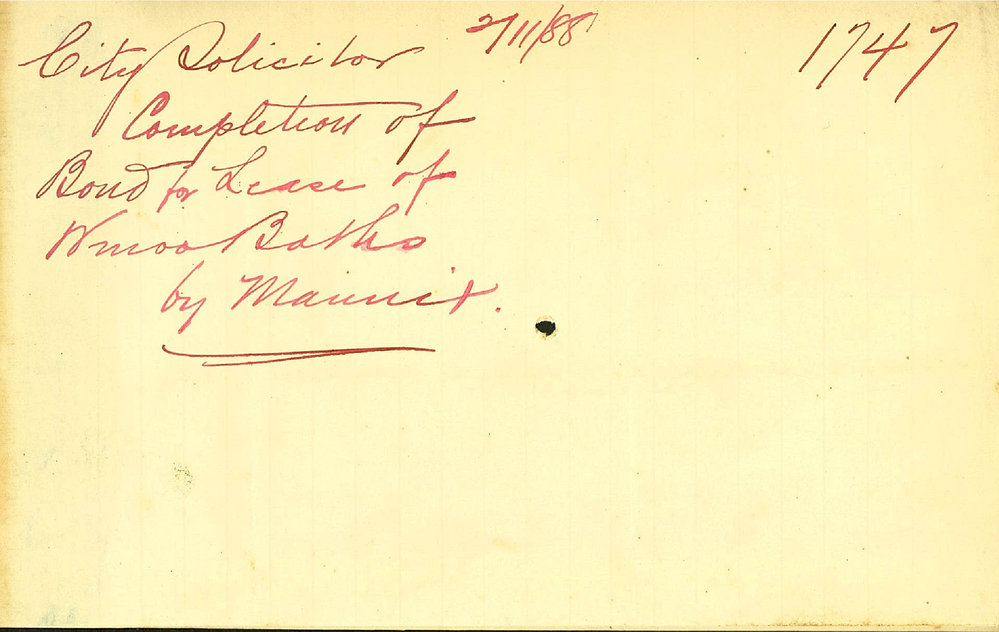 City Solicitor 2/11/88 1747
Completion of
Bond for Lease of
Wmoo Baths
by Mannix.